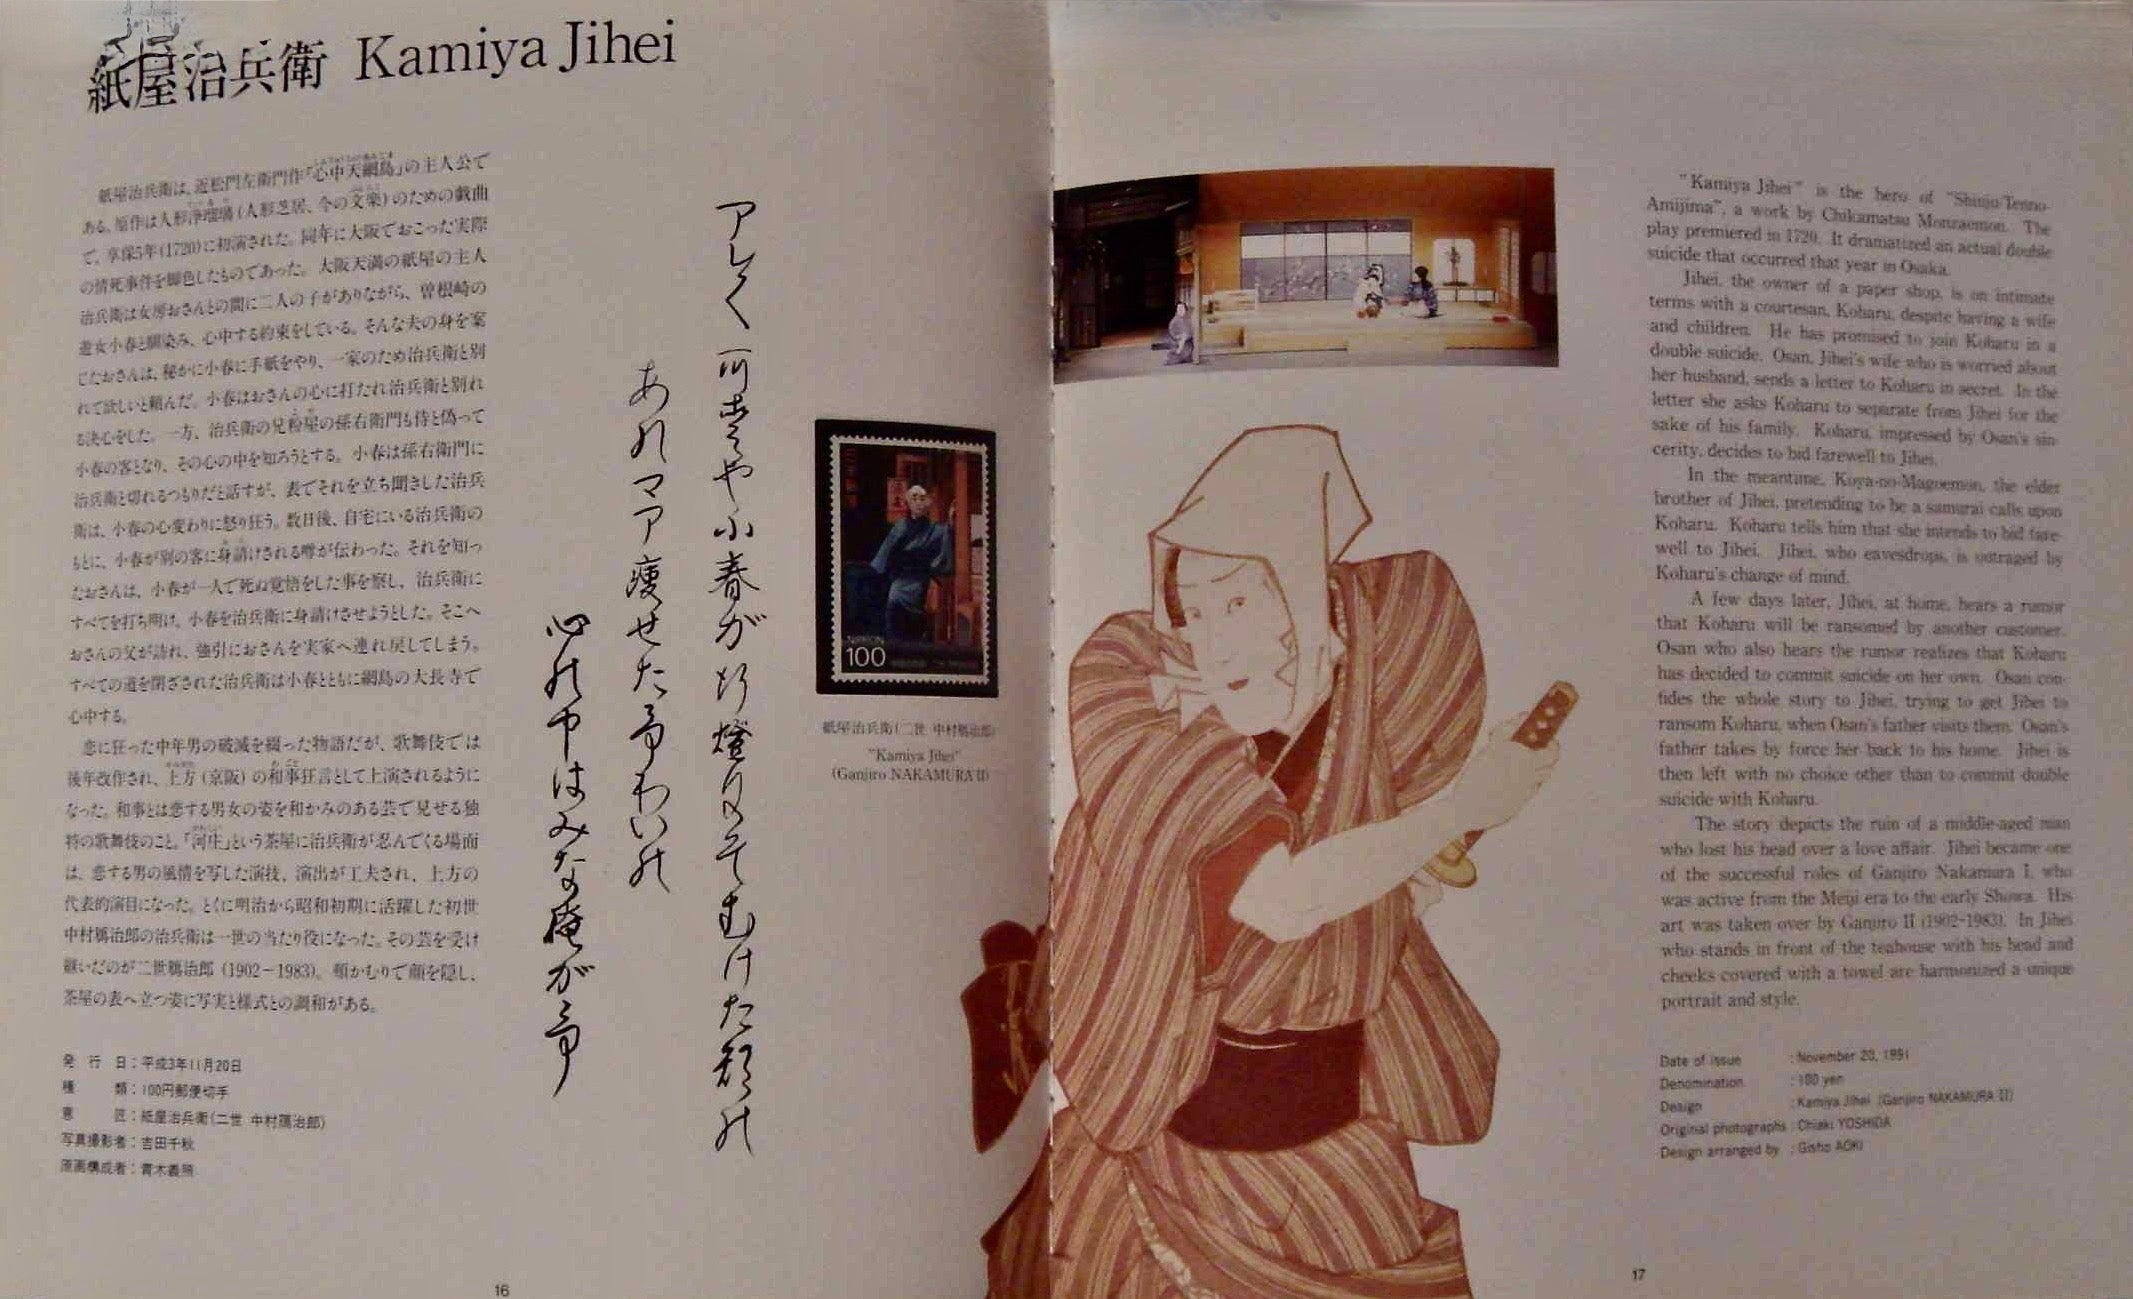 紙屋治兵衛 Kamiya Jihei
紙屋治兵衛は、近松門左衛門作「心中天網島」の主人公で
ある。原作は人形浄瑠璃(人形芝居、今の文楽)のための戯曲
で、享保5年(1720)に初演された。同年に大阪でおこった実際
の情死事件を脚色したものであった。大阪天満の紙屋の主人
治兵衛は女房おさんとの間に二人の子がありながら、曽根崎の
遊女小春と馴染み、心中する約束をしている。そんな夫の身を案
じたおさんは、秘かに小春に手紙をやり、一家のため治兵衛と別
れて欲しいと頼んだ。小春はおさんの心に打たれ治兵衛と別れ
る決心をした。一方、治兵衛の兄粉屋の孫右衛門も侍と偽って
小春の客となり、その心の中を知ろうとする。小春は孫右衛門に
治兵衛と切れるつもりだと話すが、表でそれを立ち聞きした治兵
衛は、小春の心変わりに怒り狂う。数日後、自宅にいる治兵衛の
もとに、小春が別の客に身請けされる噂が伝わった。それを知っ
たおさんは、小春が一人で死ぬ覚悟をした事を察し、治兵衛に
すべてを打ち明け、小春を治兵衛に身請けさせようとした。そこへ
おさんの父が訪れ、強引におさんを実家へ連れ戻してしまう。
すべての道を閉ざされた治兵衛は小春とともに網島の大長寺で
心中する。
恋に狂った中年男の破滅を綴った物語だが、歌舞伎では
後年改作され、上方(京阪)の和事狂言として上演されるように
なった。和事とは恋する男女の姿を和かみのある芸で見せる独
特の歌舞伎のこと。「河庄」という茶屋に治兵衛が忍んでくる場面
は、恋する男の風情を写した演技、演出が工夫され、上方の
代表的演目になった。とくに明治から昭和初期に活躍した初世
中村鴈治郎の治兵衛は一世の当たり役になった。その芸を受け
継いだのが二世鴈治郎(1902-1983)。頬かむりで顔を隠し、
茶屋の表へ立つ姿に写実と様式との調和がある。
発行日:平成3年11月20日
種類:100円郵便切手
意匠:紙屋治兵衛(二世 中村鴈治郎)
写真撮影者:吉田千秋
原画構成者:青木義照
16
小春が
あれマア痩せた
心の中はみな
NIPPON
100
紙屋治兵衛(二世 中村鴈治郎)
"Kamiya Jihei"
(Ganjiro NAKAMURA II)
"Kamiya Jihei" is the hero of "Shinju-Tenno-
Amijima", a work by Chikamatsu Monzaemon. The
play premiered in 1720. It dramatized an actual double
suicide that occurred that year in Osaka.
Jihei, the owner of a paper shop, is on intimate
terms with a courtesan, Koharu, despite having a wife
and children. He has promised to join Koharu in a
double suicide. Osan, Jihei's wife who is worried about
her husband, sends a letter to Koharu in secret. In the
letter she asks Koharu to separate from Jihei for the
sake of his family. Koharu, impressed by Osan's sin-
cerity, decides to bid farewell to Jihei.
In the meantime, Koya-no-Magoemon, the elder
brother of Jihei, pretending to be a samurai calls upon
Koharu. Koharu tells him that she intends to bid fare-
well to Jihei. Jihei, who eavesdrops, is outraged by
Koharu's change of mind.
A few days later, Jihei, at home, hears a rumor
that Koharu will be ransomed by another customer.
Osan who also hears the rumor realizes that Koharu
has decided to commit suicide on her own. Osan con-
fides the whole story to Jihei, trying to get Jihei to
ransom Koharu, when Osan's father visits them. Osan's
father takes by force her back to his home. Jihei is
then left with no choice other than to commit double
suicide with Koharu.
The story depicts the ruin of a middle-aged man
who lost his head over a love affair. Jihei became one
of the successful roles of Ganjiro Nakamura I, who
was active from the Meiji era to the early Showa. His
art was taken over by Ganjiro II (1902-1983). In Jihei
who stands in front of the teahouse with his head and
cheeks covered with a towel are harmonized a unique
portrait and style.
Date of issue : November 20, 1991
Denomination : 100 yen
Design : Kamiya Jihei (Ganjiro NAKAMURA II)
Original photographs : Chiaki YOSHIDA
Design arranged by : Gisho AOKI
17